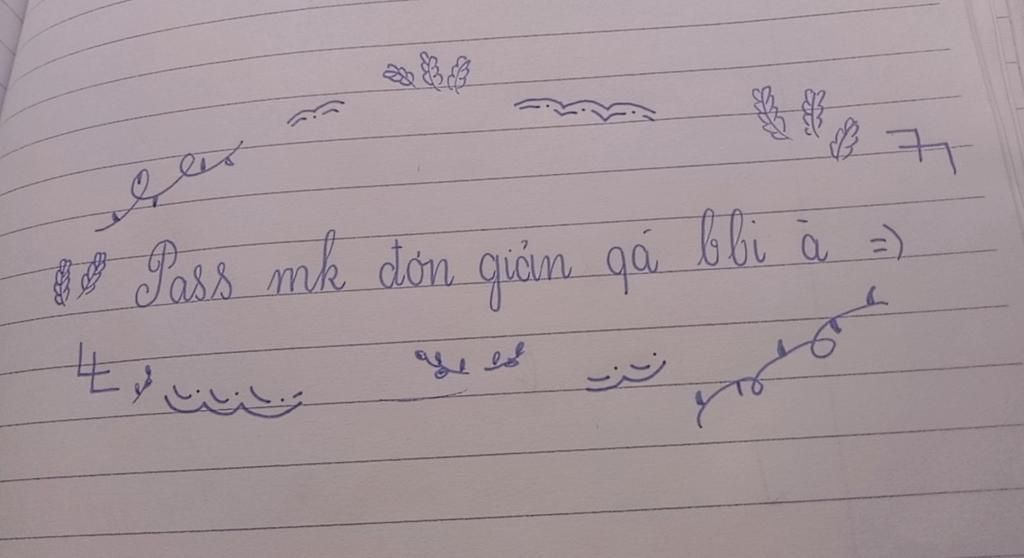 Pass mk đơn giản qá bbi à =)